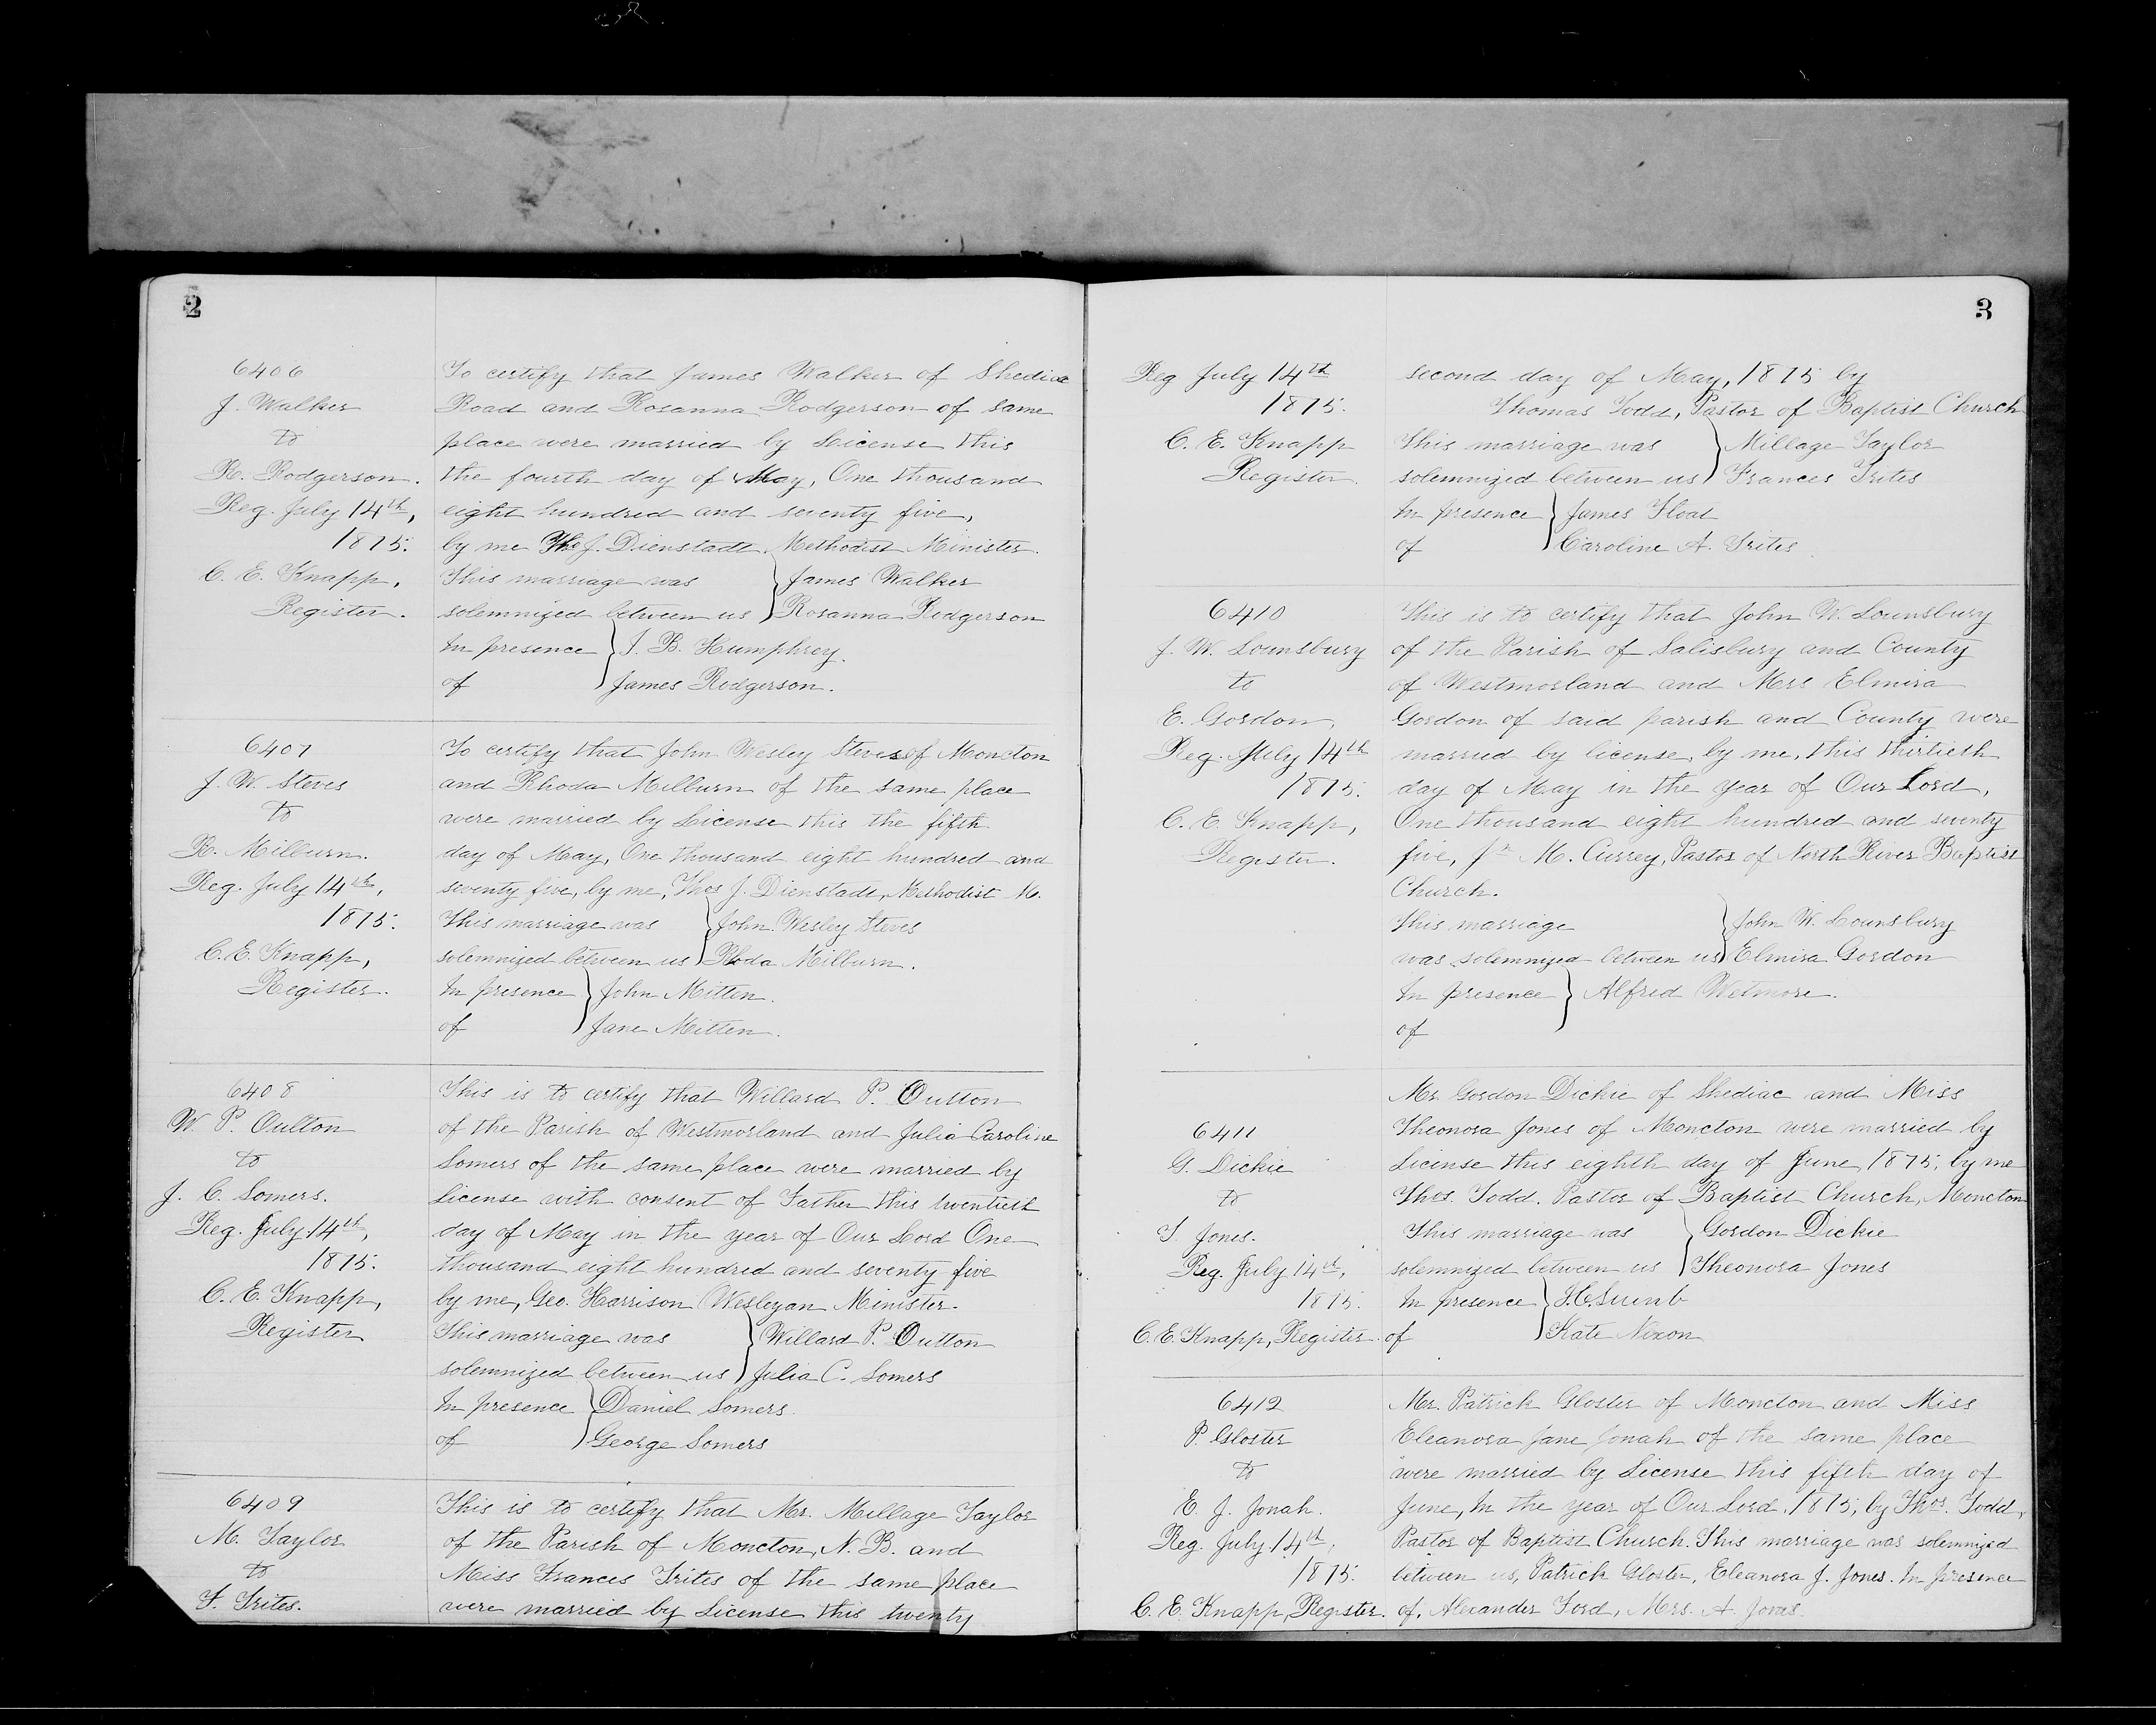 2
6406
J. Walker
to
R. Rodgerson.
Reg. July 14th,
1875.
C. E. Knapp,
Register.
To certify that James Walker of Shediac
Road and Rosanna Rodgerson of same
place were married by License this
the fourth day of May, One thousand
eight hundred and seventy five,
by me Thos J. Dienstadt Methodist Minister.
This marriage was } James Walker
solemnized between us } Rosanna Rodgerson
In presence } J. B. Humphrey.
of } James Rodgerson.
6407
J. W. Steves
to
R. Milburn.
Reg. July 14th,
1875.
C. E. Knapp,
Register.
To certify that John Wesley Steves of Moncton
and Rhoda Milburn of the same place
were married by License this the fifth
day of May, One thousand eight hundred and
seventy five, by me, Thos J. Dienstadt, Methodist M.
This marriage was } John Wesley Steves
solemnized between us } Rhoda Milburn.
In presence } John Mitten.
of } Jane Mitten.
6408
W. P. Oulton
to
J. C. Somers.
Reg. July 14th,
1875.
C. E. Knapp,
Register
This is to certify that Willard P. Oulton
of the Parish of Westmorland and Julia Caroline
Somers of the same place were married by
License with consent of Father this twentieth
day of May in the year of Our Lord One
thousand eight hundred and seventy five
by me, Geo. Harrison Wesleyan Minister.
This marriage was } Willard P. Oulton
solemnized between us } Julia C. Somers
In presence } Daniel Somers.
of } George Somers
6409
M. Taylor
to
F. Trites.
This is to certify that Mr. Millage Taylor
of the Parish of Moncton, N. B. and
Miss Frances Trites of the same place
were married by License this twenty
3
Reg July 14th
1875.
C. E. Knapp
Register.
second day of May, 1875 by
Thomas Todd, Pastor of Baptist Church
This marriage was } Millage Taylor
solemnized between us } Frances Trites
In presence } James Float
of } Caroline A. Trites.
6410
J. W. Lounsbury
to
E. Gordon,
Reg. July 14th
1875.
C. E. Knapp,
Register.
This is to certify that John W. Lounsbury
of the Parish of Salisbury and County
of Westmorland and Mrs Elmira
Gordon of said parish and County were
married by license, by me, this thirtieth
day of May in the year of Our Lord,
One thousand eight hundred and seventy
five, M. Currey, Pastor of North River Baptist
Church.
This marriage } John W. Lounsbury
was solemnized between us } Elmira Gordon
In presence } Alfred Wetmore.
of
6411
G. Dickie
to
T. Jones.
Reg. July 14th,
1875.
C. E. Knapp, Register.
Mr. Gordon Dickie of Shediac and Miss
Theonora Jones of Moncton were married by
License this eighth day of June, 1875, by me
Thos. Todd. Pastor of Baptist Church, Moncton
This marriage was } Gordon Dickie
solemnized between us } Theonora Jones
In presence
of } Kate Nixon
6412
P. Gloster
to
E. J. Jonah.
Reg. July 14th,
1875.
C. E. Knapp, Register.
Mr. Patrick Gloster of Moncton and Miss
Eleanora Jane Jonah of the same place
were married by License this fifth day of
June, In the year of Our Lord, 1875, by Thos. Todd,
Pastor of Baptist Church. This marriage was solemnized
between us, Patrick Gloster, Eleanora J. Jones. In presence
of, Alexander Ford, Mrs. A. Jones.